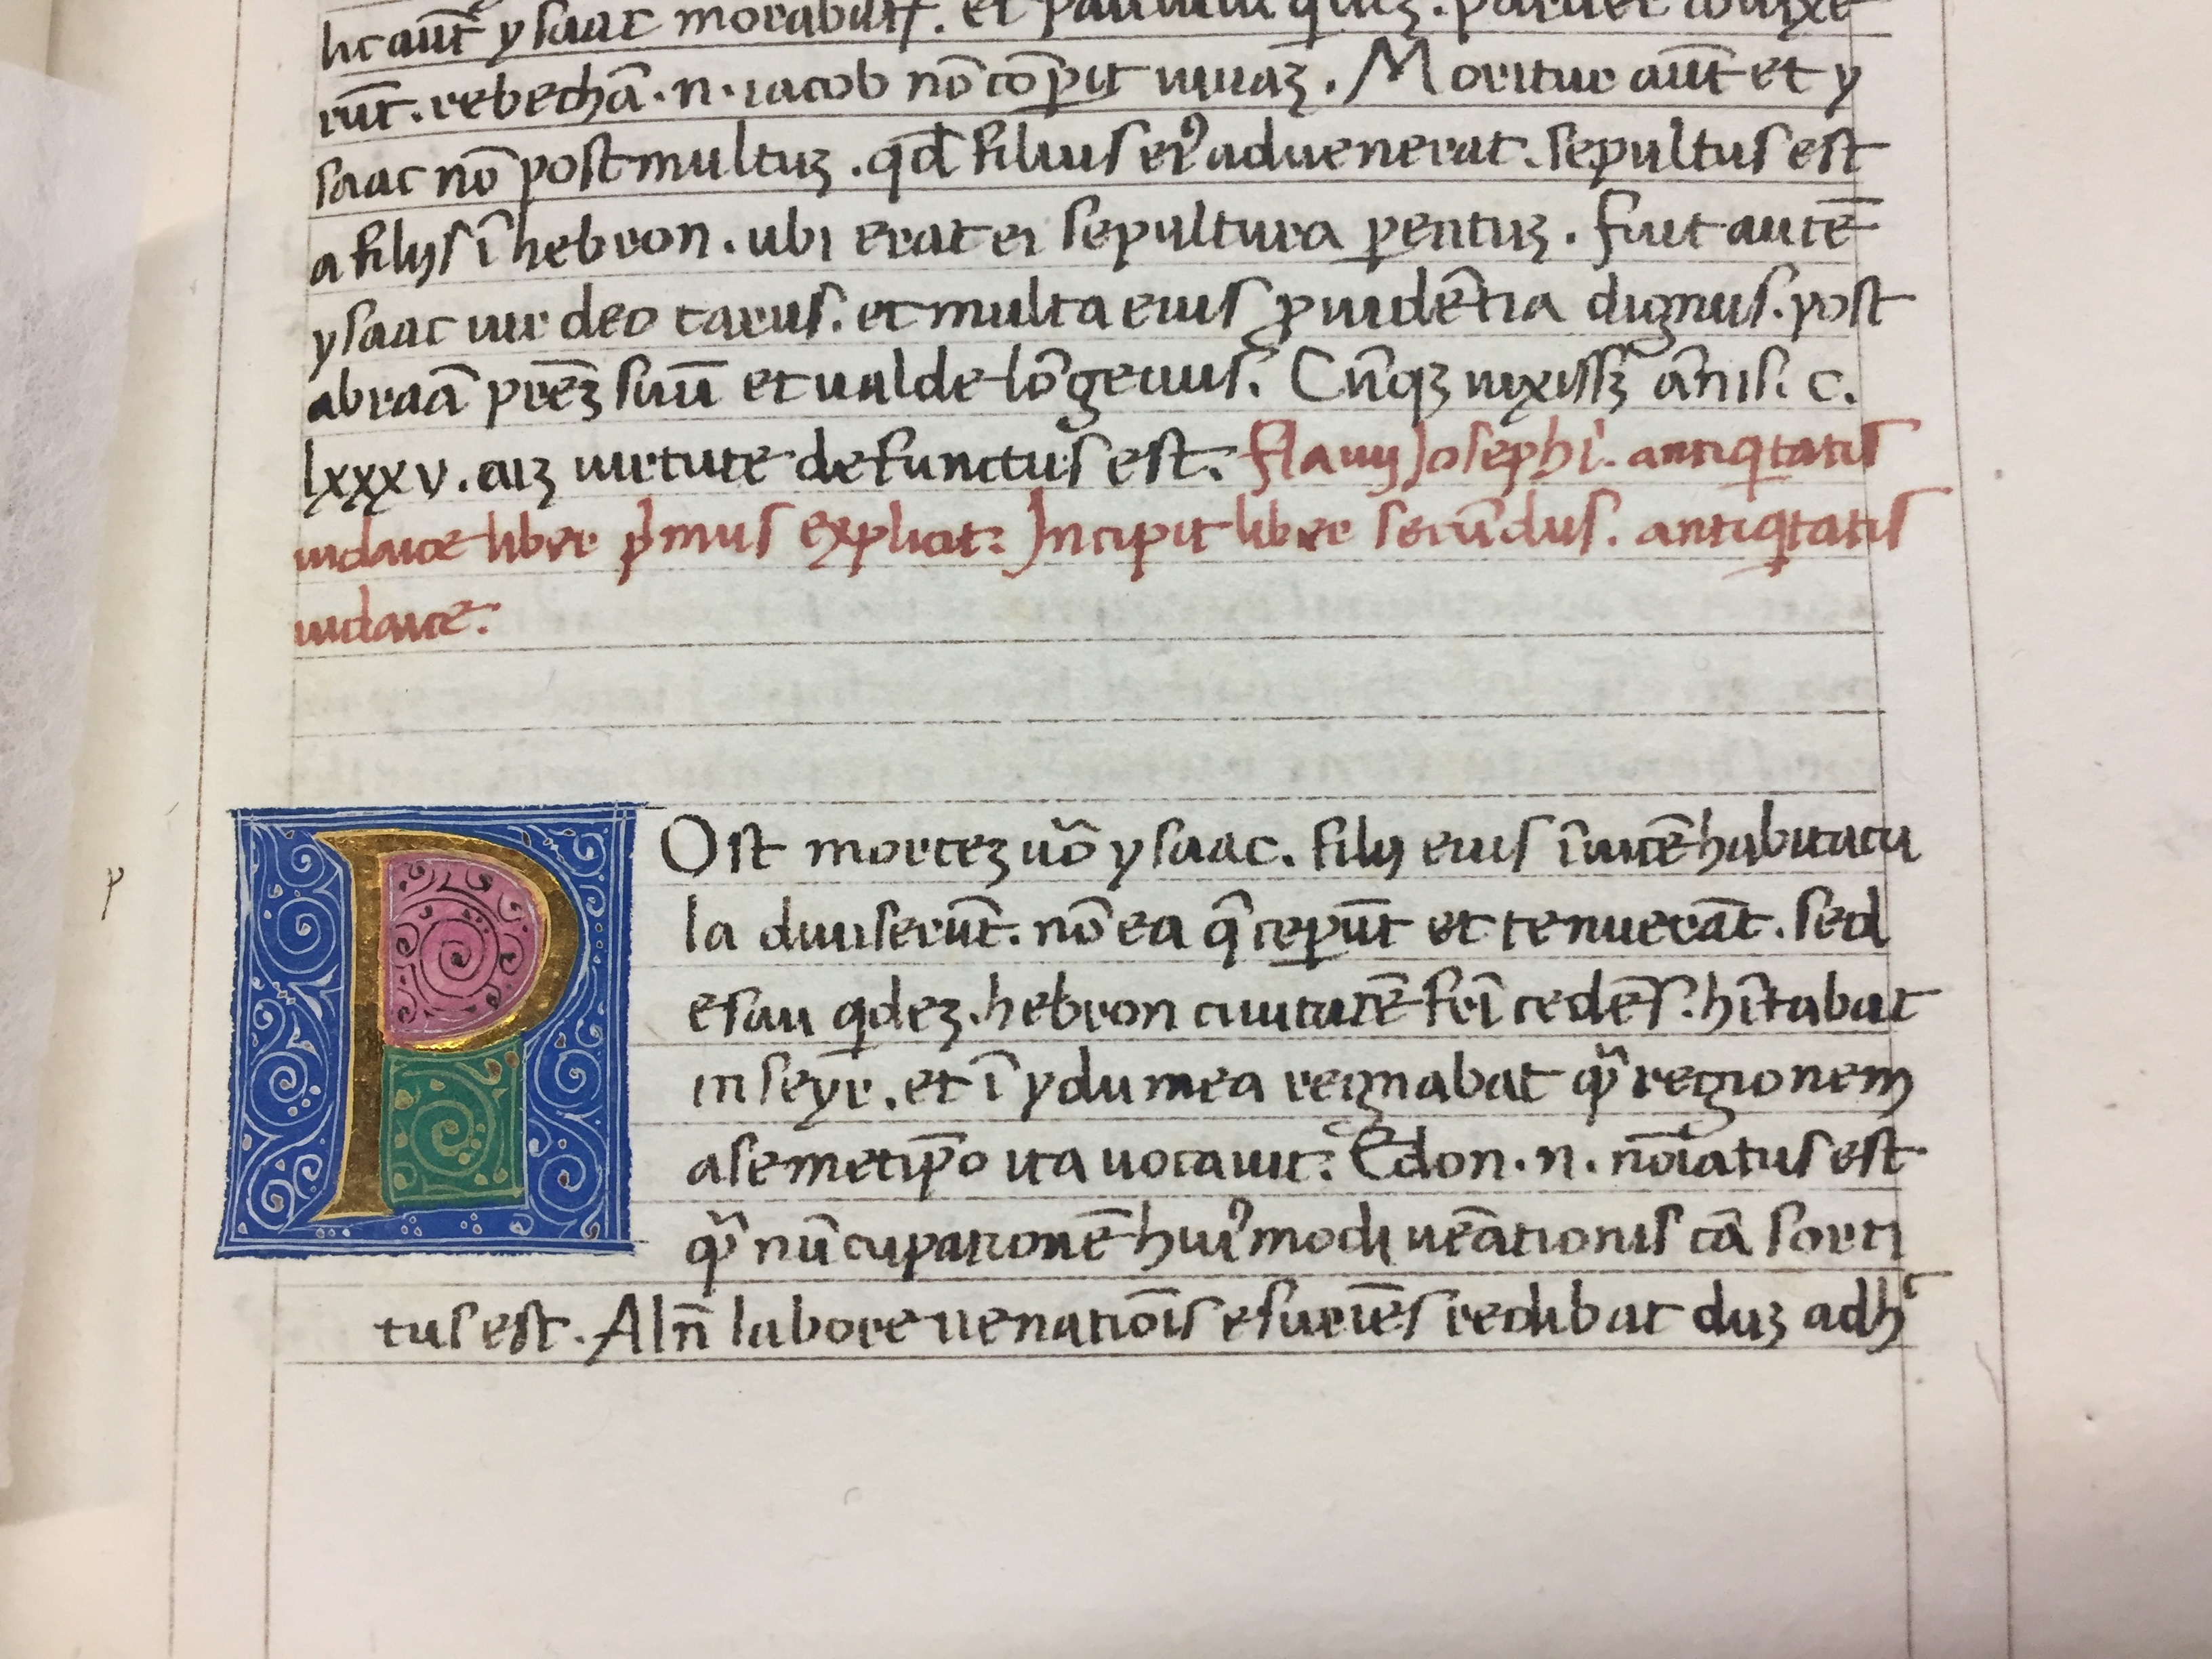 hic aūt ysaac morabat᷒. et
rūt. rebechā. n. iacob nō cōpit uiuaʒ. Moritur aūt et y
saac nō post multuʒ. qd̄ filius ei⁹ aduenerat. sepultus est
a filijs ī hebron. ubi erat ei sepultura pentuʒ. fuit autē
ysaac uir deo carus. et multa eius ꝓuidētia dignus. post
abraā prēʒ suū et ualde lōgeuus. Cūqʒ uixissʒ ānis. c.
lxxxv. cuʒ uirtute defunctus est. flauij Josephi. antiqtatis
iudaice liber pͥmus explicit: Incipit liber secūdus. antiqtatis
iudaice:
p
POst morteʒ uō ysaac. filij eius īuicē habitacu
la diuiserūt. nō ea q̄ cepūt et tenuerāt. sed
esau qdeʒ. hebron ciuitatē frī cedēs. hītabat
in seyr. et ī ydumea regnabat qͣ regionem
a semetip̄o ita uocauit: Edon. n. noīatus est
qͣ nūcupationē hui⁹modi ueātionis cā sorti
tus est. Aln̄ labore uenatiōis esuriēs redibat duʒ adh᷒